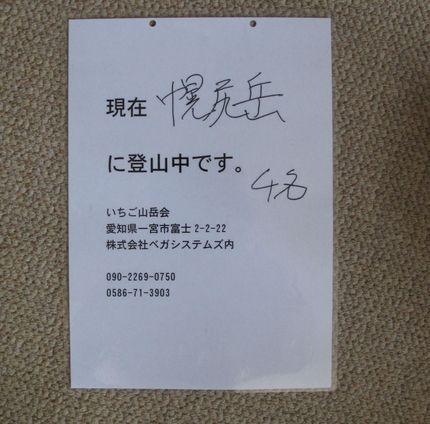 現在 幌尻岳
に登山中です。
4名
いちご山岳会
愛知県一宮市富士2-2-22
株式会社ベガシステムズ内
090-2269-0750
0586-71-3903